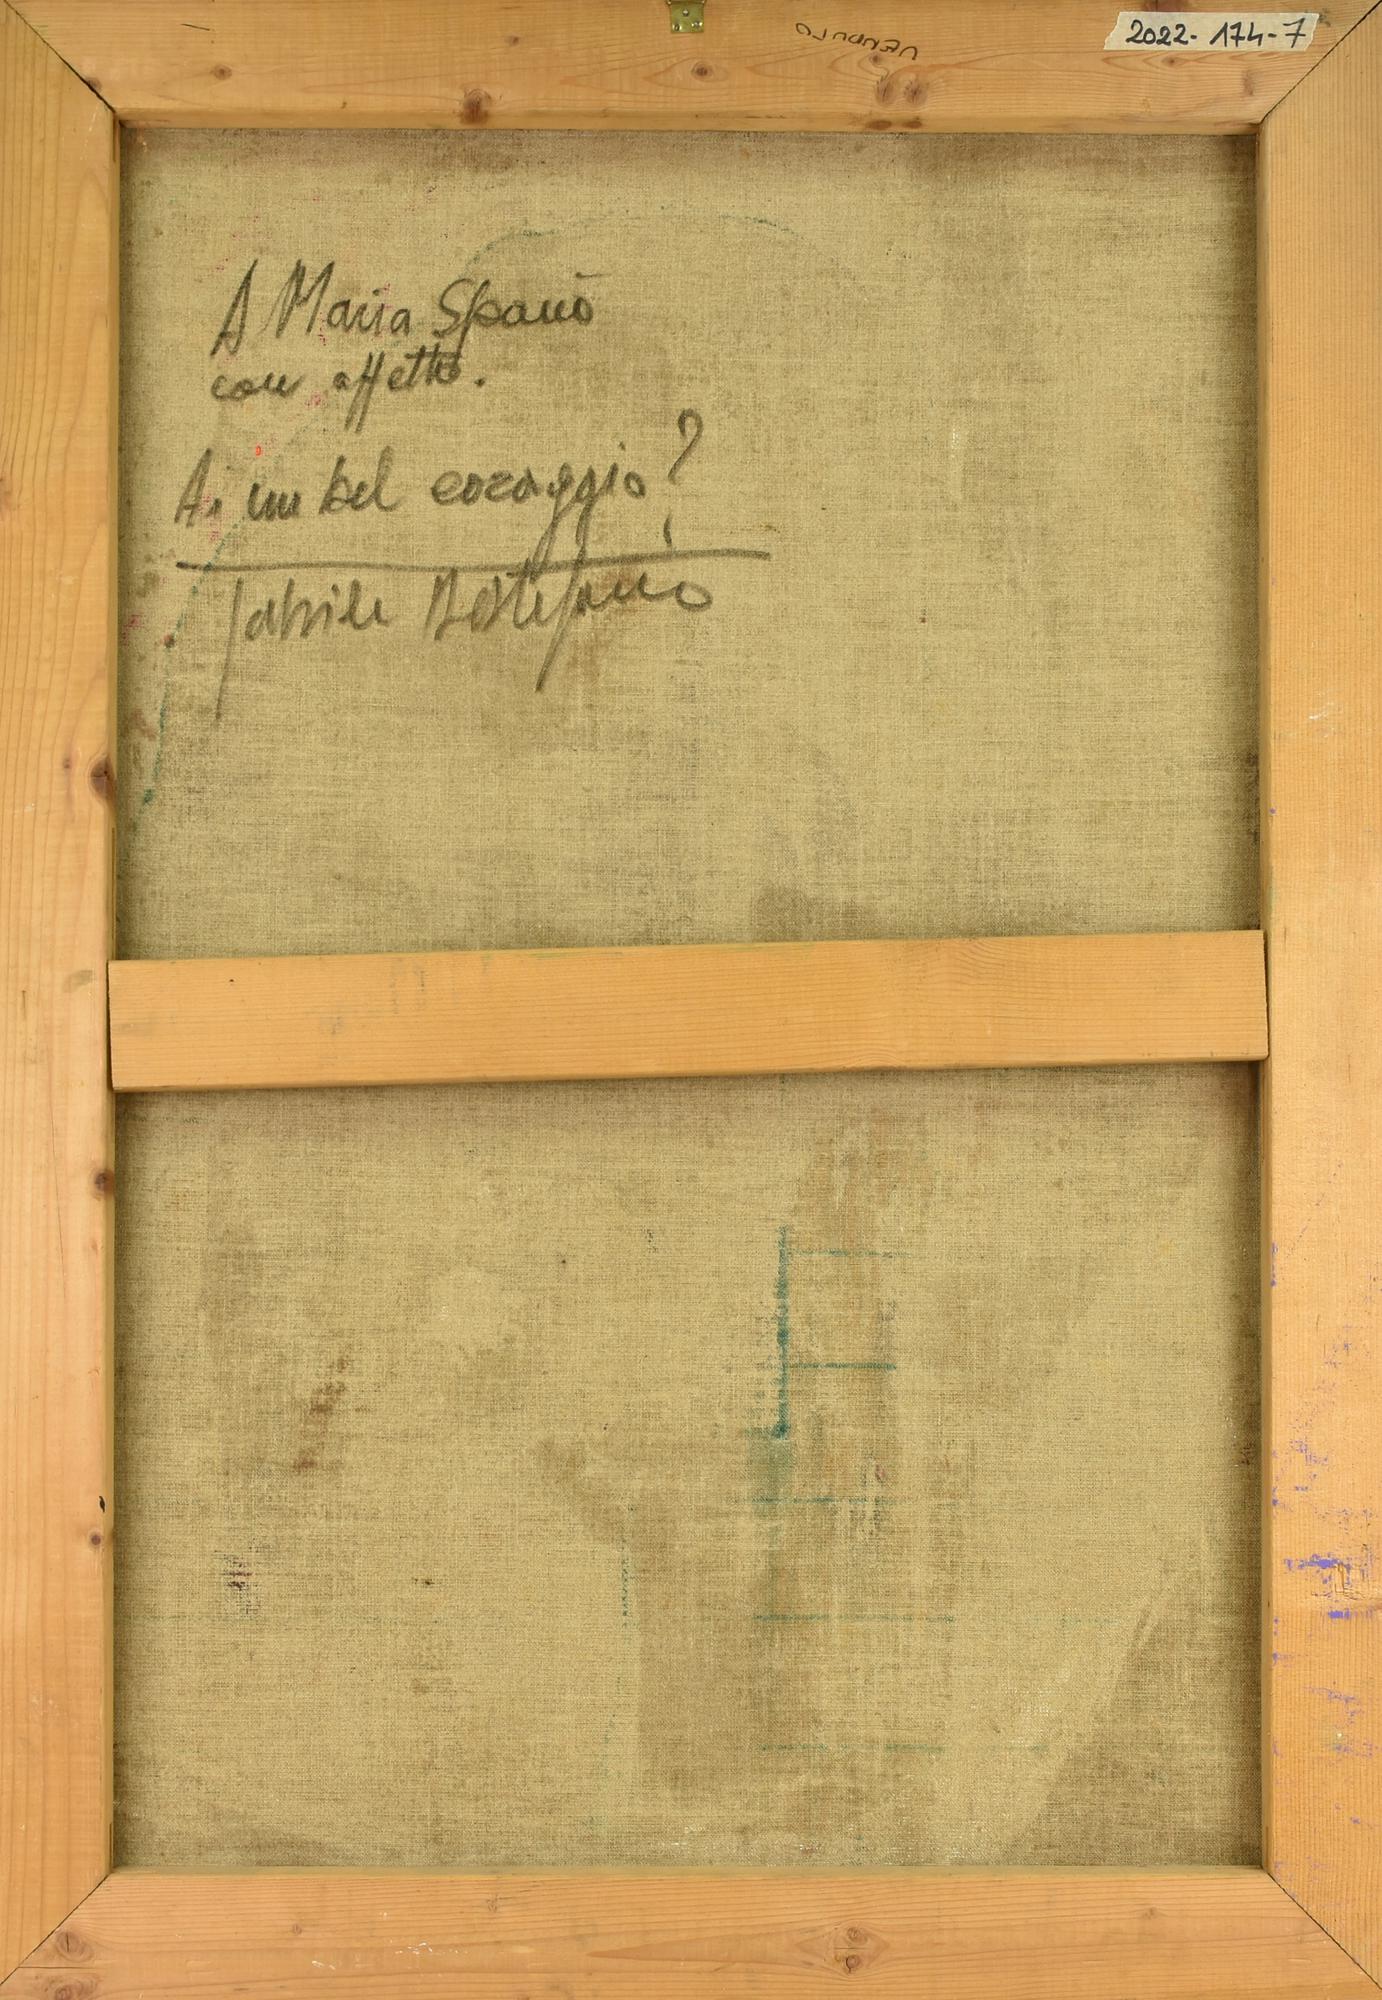 2022-174-7
A Maria Spanò
con affetto.
Ai un bel coraggio?